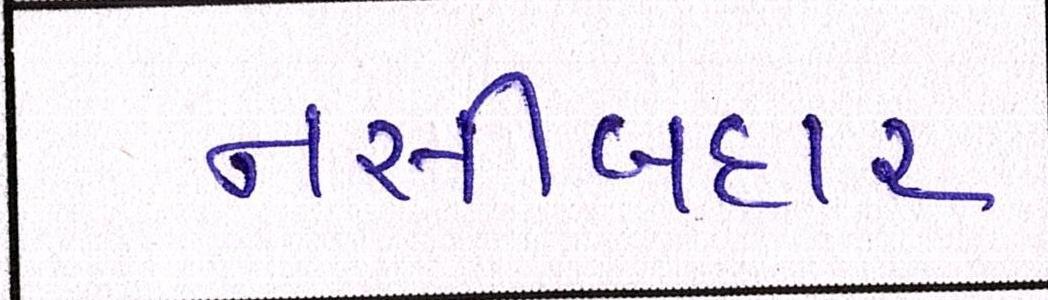 નસીબદાર